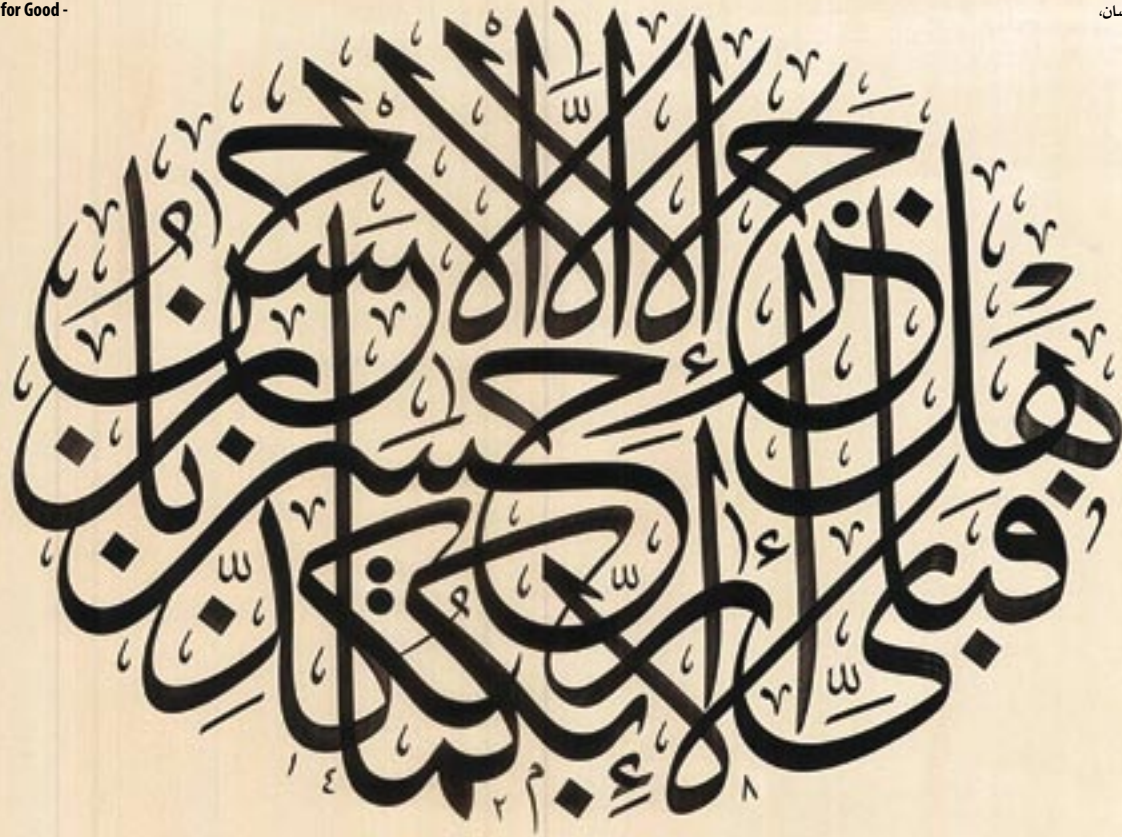 for Good -
سان،
هَلْ جَزَاءُ الْإِحْسَانِ إِلَّا الْإِحْسَانُ
فَبِأَيِّ آلَاءِ رَبِّكُمَا تُكَذِّبَانِ
١٤٢٨